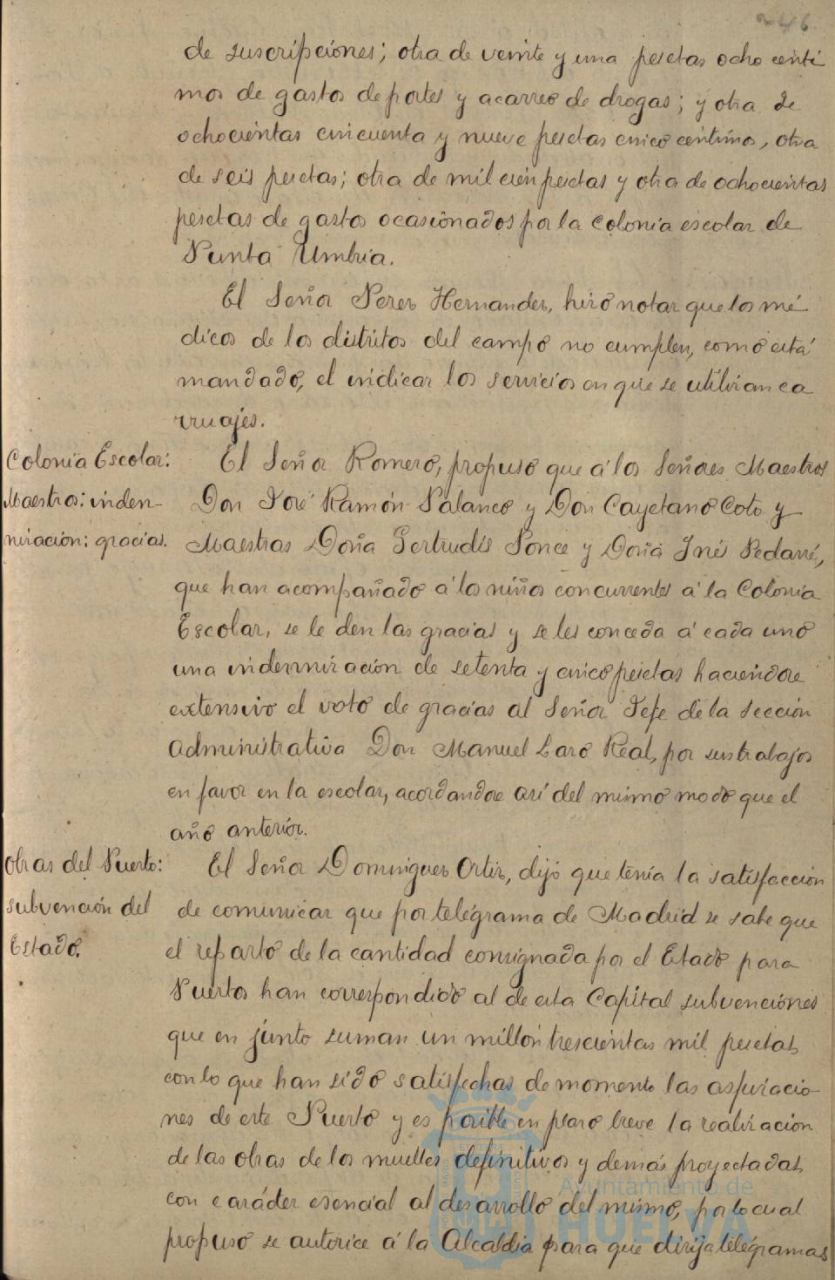 246.
de suscripciones; otra de veinte y una pesetas ocho centi
mos de gastos de portes y acarreo de drogas; y otra de
ochocientas cincuenta y nueve pesetas cinco centimos, otra
de seis pesetas; otra de mil cien pesetas y otra de ochocientas
pesetas de gastos ocasionados por la colonia escolar de
Punta Umbria.
El Señor Perez Hernandez, hizo notar que los mé
dicos de los distritos del campo no cumplen, como está
mandado, el indicar los servicios en que se utilizan ca
rruajes.
Colonia Escolar:
Maestros: indem-
nización: gracias.
El Señor Romero, propuso que á los Señores Maestros
Don José Ramón Palanco y Don Cayetano Coto y
Maestras Doña Gertrudis Ponce y Doña Inés
que han acompañado á los niños concurrentes á la Colonia
Escolar, se le den las gracias y se les conceda á cada uno
una indemnización de setenta y cinco pesetas haciendose
extensivo el voto de gracias al Señor Jefe de la Sección
administrativa Don Manuel Garo Real, por sus trabajos
en favor en la escolar, acordandose así del mismo modo que el
año anterior.
Obras del Puerto:
subvención del
Estado.
El Señor Dominguez Ortiz, dijo que tenía la satisfacción
de comunicar que por telégrama de Madrid se sabe que
el reparto de la cantidad consignada por el Estado para
Puertos han correspondido al de esta Capital subvenciones
que en junto suman un millón trescientas mil pesetas,
con lo que han sido satisfechas de momento las aspiracio
nes de este Puerto y es posible en plazo breve la realización
de las obras de los muelles definitivos y demás proyectadas
con caracter esencial al desarrollo del mismo, por lo cual
propuso se autorice á la Alcaldia para que dirija telégramas
Ayuntamiento de
HUELVA